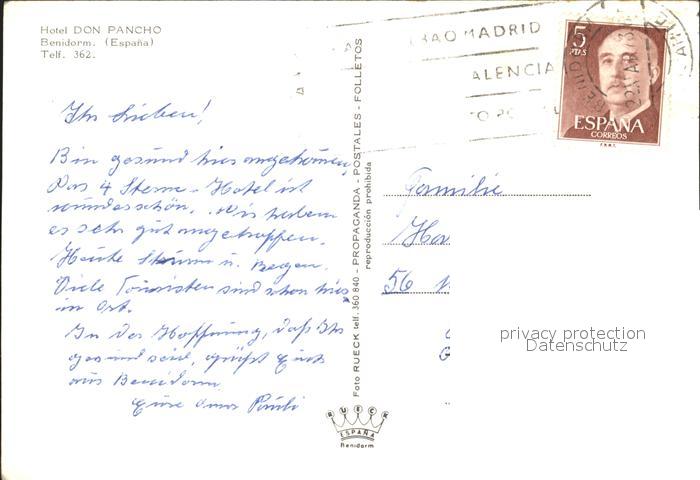 Hotel DON PANCHO
Benidorm. (España)
Telf. 362.
Ihr Lieben!
Bin gesund hier angekommen,
Das 4 Sterne-Hotel ist
wunderschön. Wir haben
es sehr gut angetroffen.
Heute Sturm u. Regen.
Viele Touristen sind schon hier
im Ort.
In der Hoffnung, daß Ihr
gesund seid, grüßt Euch
aus Benidorm
Eure
Foto RUECK telf. 360 840 - PROPAGANDA - POSTALES - FOLLETOS
reproducción prohibida
RUECK
ESPAÑA
Benidorm
BAO MADRID
ALENCIA
5
PTS
ESPAÑA
CORREOS
Familie
56
privacy protection
Datenschutz